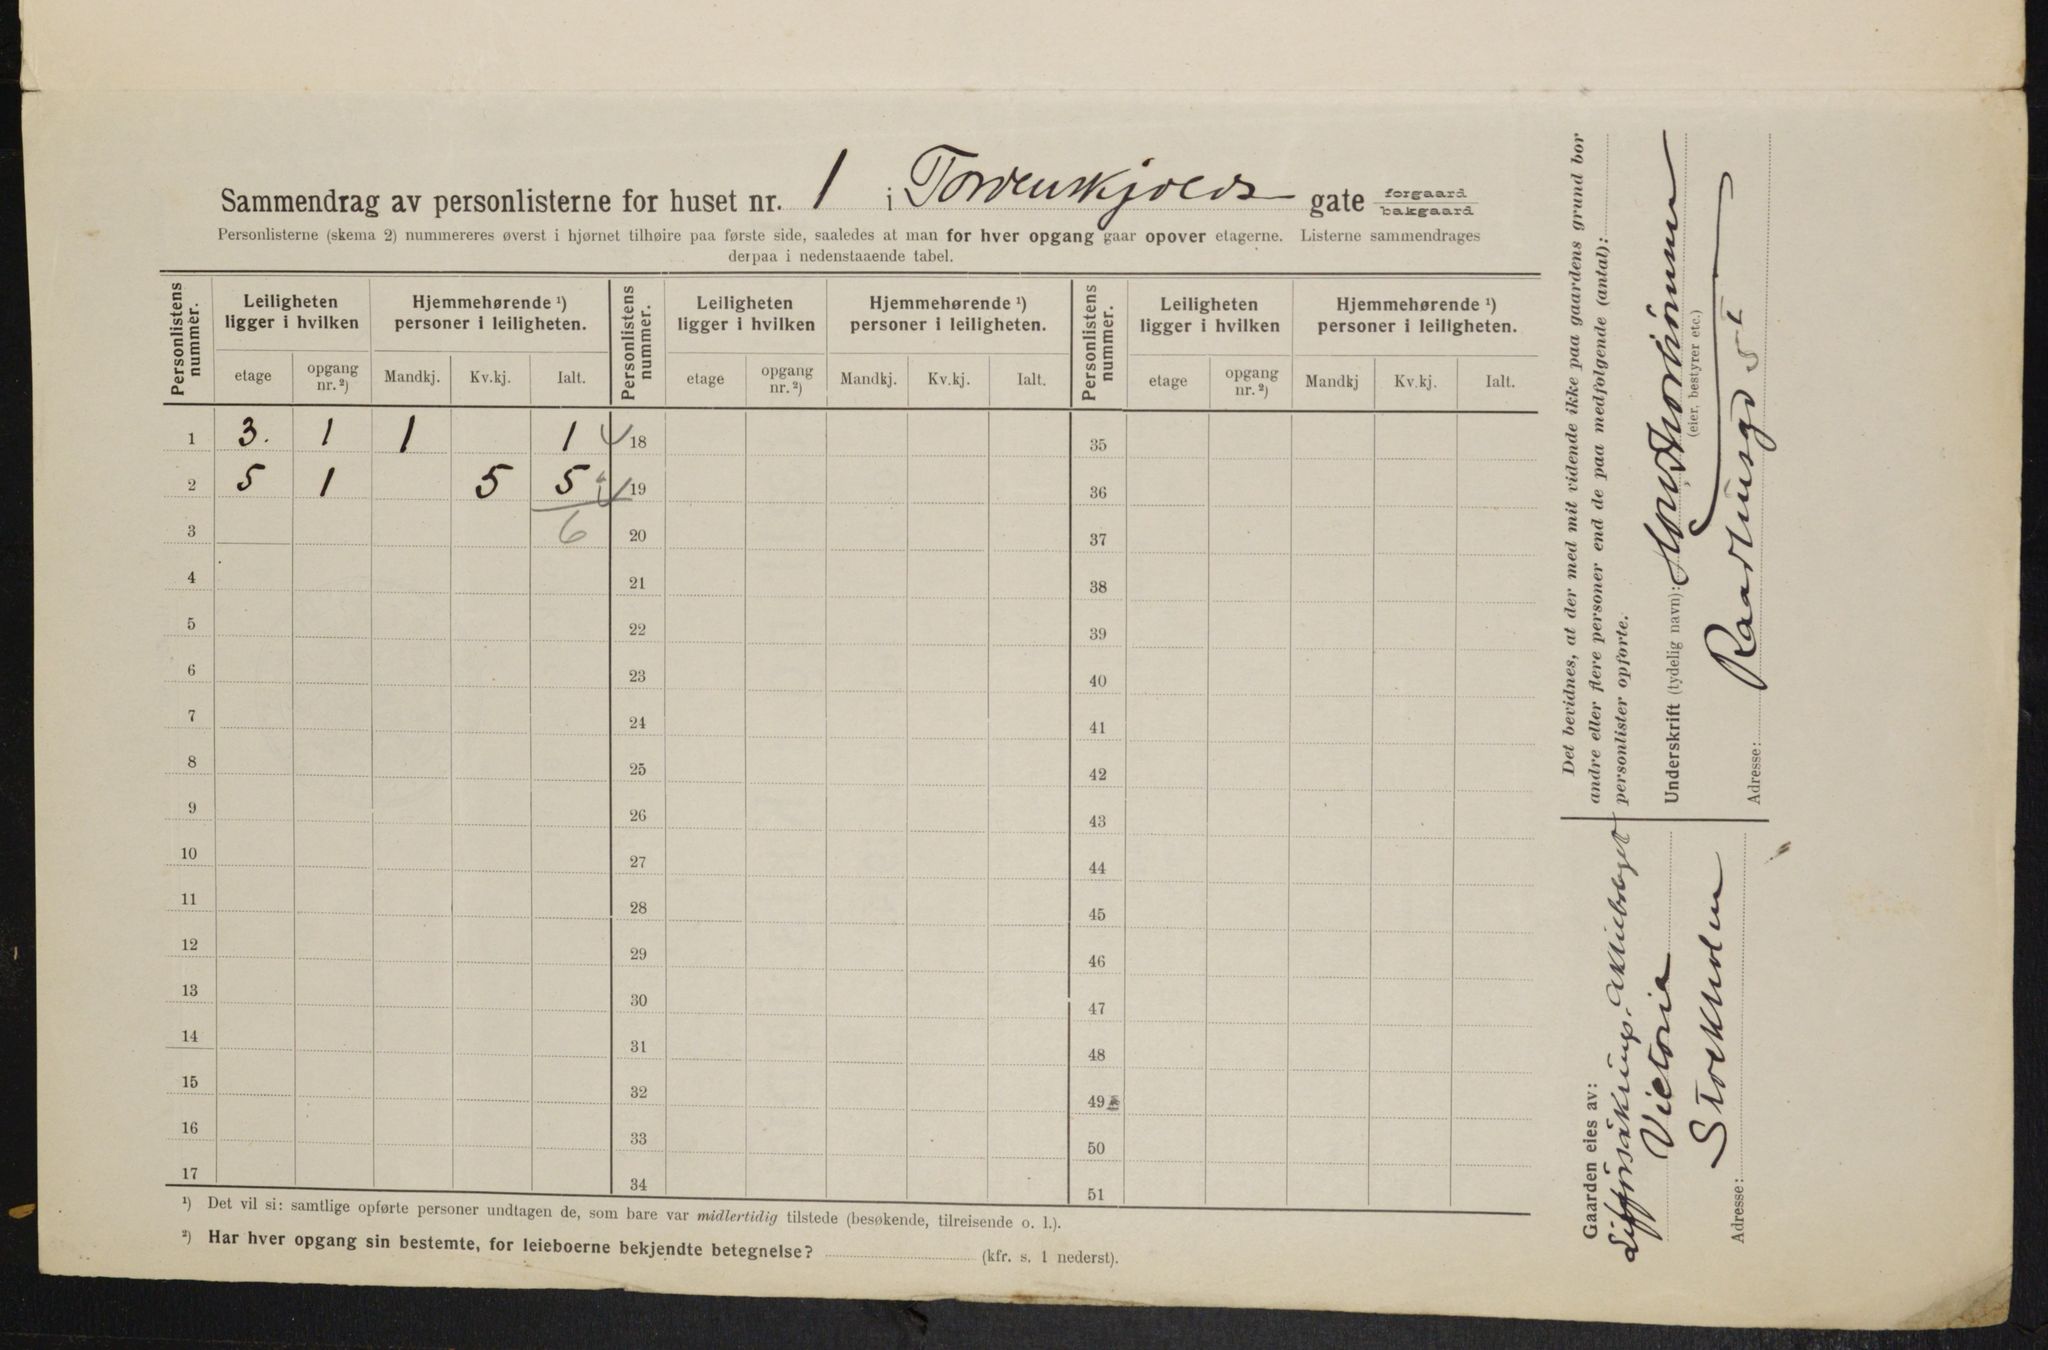 Sammendrag av personlisterne for huset nr. 1 i Tordenskjolds gate forgaard bakgaard
Personlisterne (skema 2) nummereres øverst i hjørnet tilhøire paa første side, saaledes at man for hver opgang gaar opover etagerne. Listerne sammendrages
derpaa i nedenstaaende tabel.
Personlistens nummer. Leiligheten ligger i hvilken Hjemmehørende ¹) personer i leiligheten. Personlistens nummer. Leiligheten ligger i hvilken Hjemmehørende ¹) personer i leiligheten. Personlistens nummer. Leiligheten ligger i hvilken Hjemmehørende ¹) personer i leiligheten.
etage opgang nr. ²) Mandkj. Kv.kj. Ialt. etage opgang nr. ²) Mandkj. Kv.kj. Ialt. etage opgang nr. ²) Mandkj Kv.kj. Ialt.
1 3. 1 1 1 18 35
2 5 1 5 5 19 36
3 6 20 37
4 21 38
5 22 39
6 23 40
7 24 41
8 25 42
9 26 43
10 27 44
11 28 45
12 29 46
13 30 47
14 31 48
15 32 49
16 33 50
17 34 51
¹) Det vil si: samtlige opførte personer undtagen de, som bare var midlertidig tilstede (besøkende, tilreisende o. l.).
²) Har hver opgang sin bestemte, for leieboerne bekjendte betegnelse? (kfr. s. 1 nederst).
Det bevidnes, at der med mit vidende ikke paa gaardens grund bor
andre eller flere personer end de paa medfølgende (antal):
personlister opførte.
Underskrift (tydelig navn):
(eier, bestyrer etc.)
Adresse: Raadhusgd 5 I
Gaarden eies av:
Aktiebolaget
Victoria
Stockholm
Adresse: